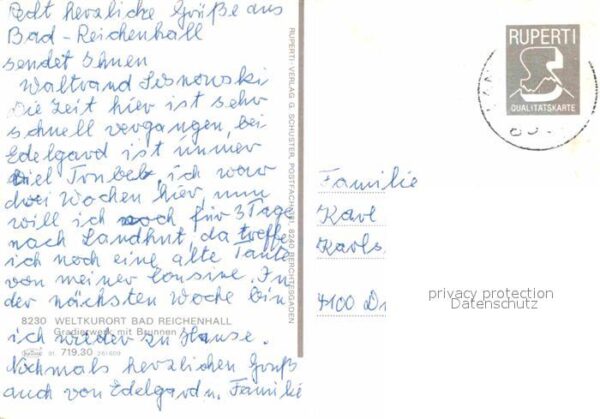 Recht herzliche Grüße aus
Bad-Reichenhall
sendet Ihnen
Waltraud Lisnowski
Die Zeit hier ist sehr
schnell vergangen, bei
Edelgard ist immer
viel Trubel, ich war
drei Wochen hier, nun
will ich noch für 3 Tage
nach Landhut, da treffe
ich noch eine alte Tante
von meiner Cousine. In
der nächsten Woche bin
8230 WELTKURORT BAD REICHENHALL
Gradierwerk mit Brunnen
ich wieder zu Hause.
91 719.30
Nochmals herzlichen Gruß
auch von Edelgard u. Familie
RUPERTI-VERLAG G. SCHUSTER, POSTFACH 8240 BERCHTESGADEN
RUPERTI
QUALITÄTSKARTE
Familie
Karl
Karls
4100 Du
privacy protection
Datenschutz